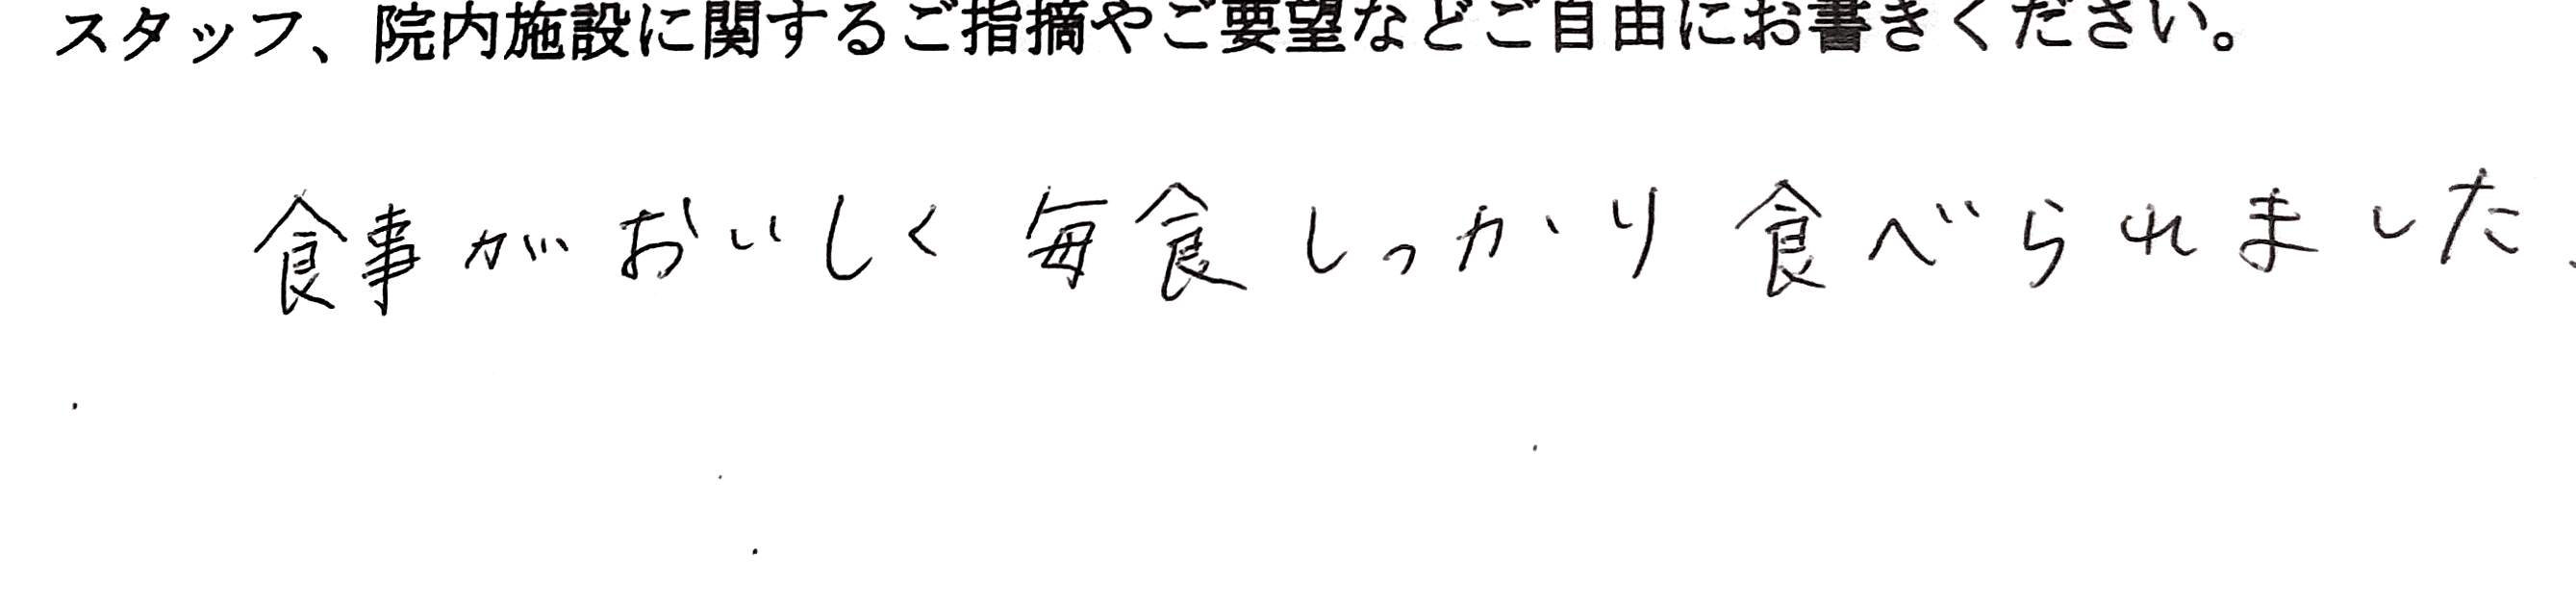 スタッフ、院内施設に関するご指摘やご要望などご自由にお書きください。
食事がおいしく毎食しっかり食べられました